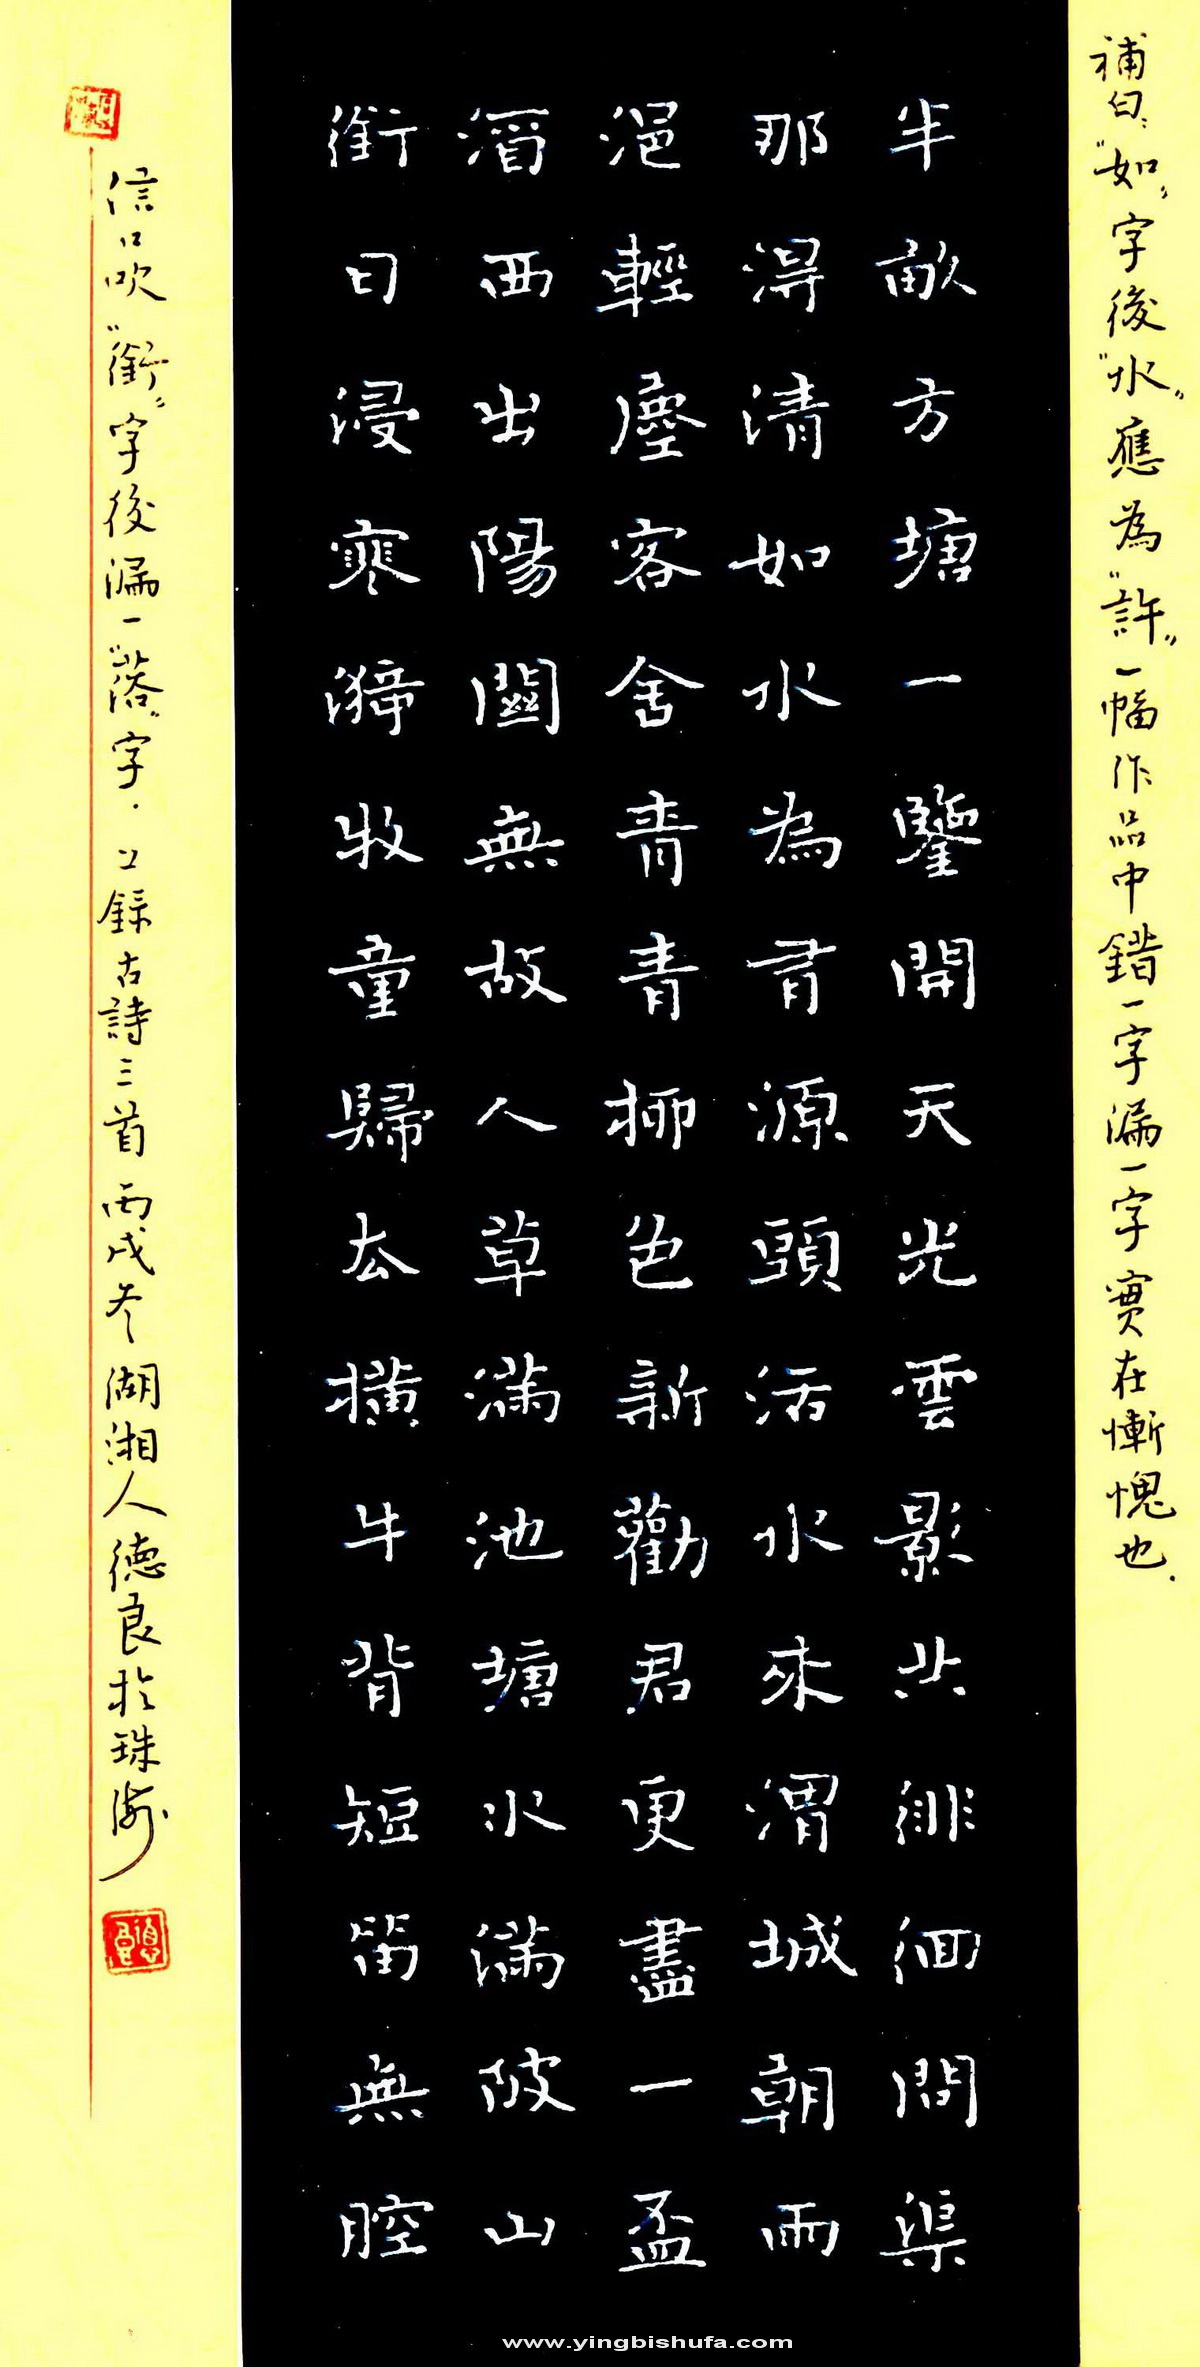 補曰："如"字後"水"應為"許"一幅作品中錯一字漏一字實在慚愧也.
半畝方塘一鑒開天光雲影共徘徊問渠
那得清如水為有源頭活水來渭城朝雨
浥輕塵客舍青青柳色新勸君更盡一盃
酒西出陽關無故人草滿池塘水滿陂山
銜日浸寒漪牧童歸去橫牛背短笛無腔
信口吹"銜"字後漏一"落"字.上錄古詩三首 丙戌冬 湖湘人德良於珠海
德良
www.yingbishufa.com